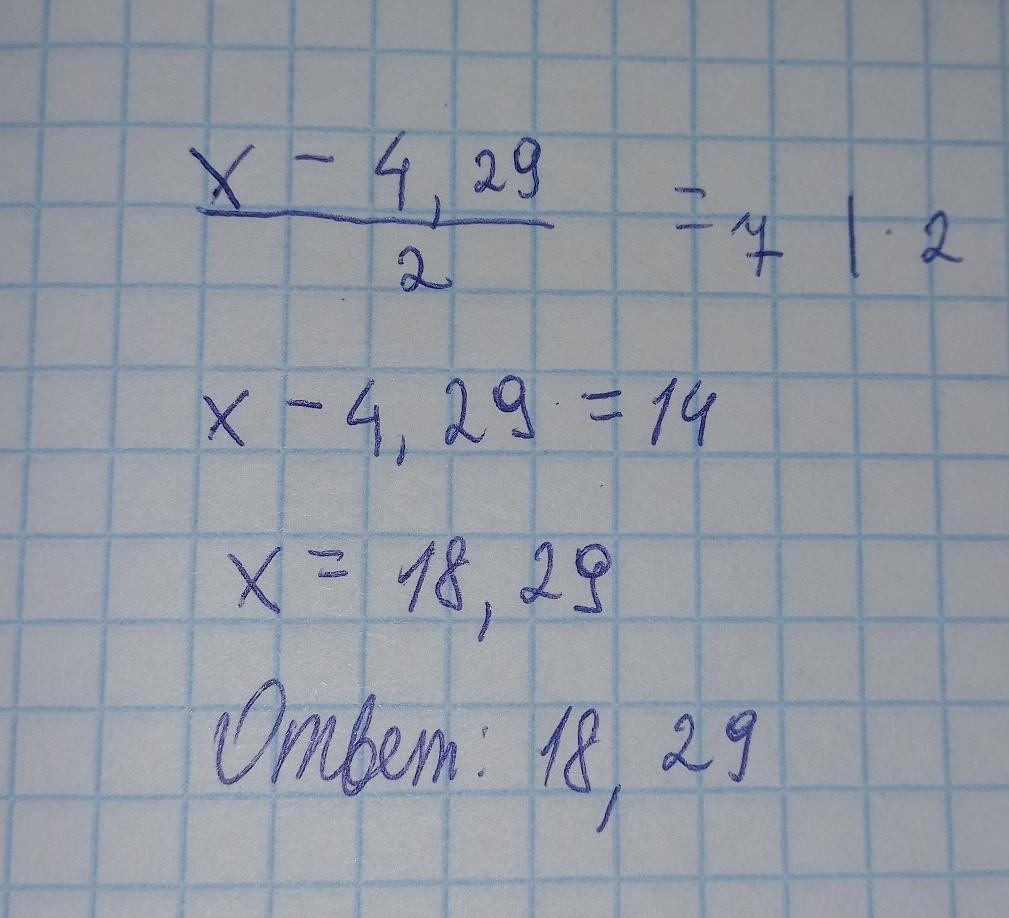 x - 4,29 / 2 = 7 | · 2
x - 4,29 = 14
x = 18,29
Ответ: 18,29